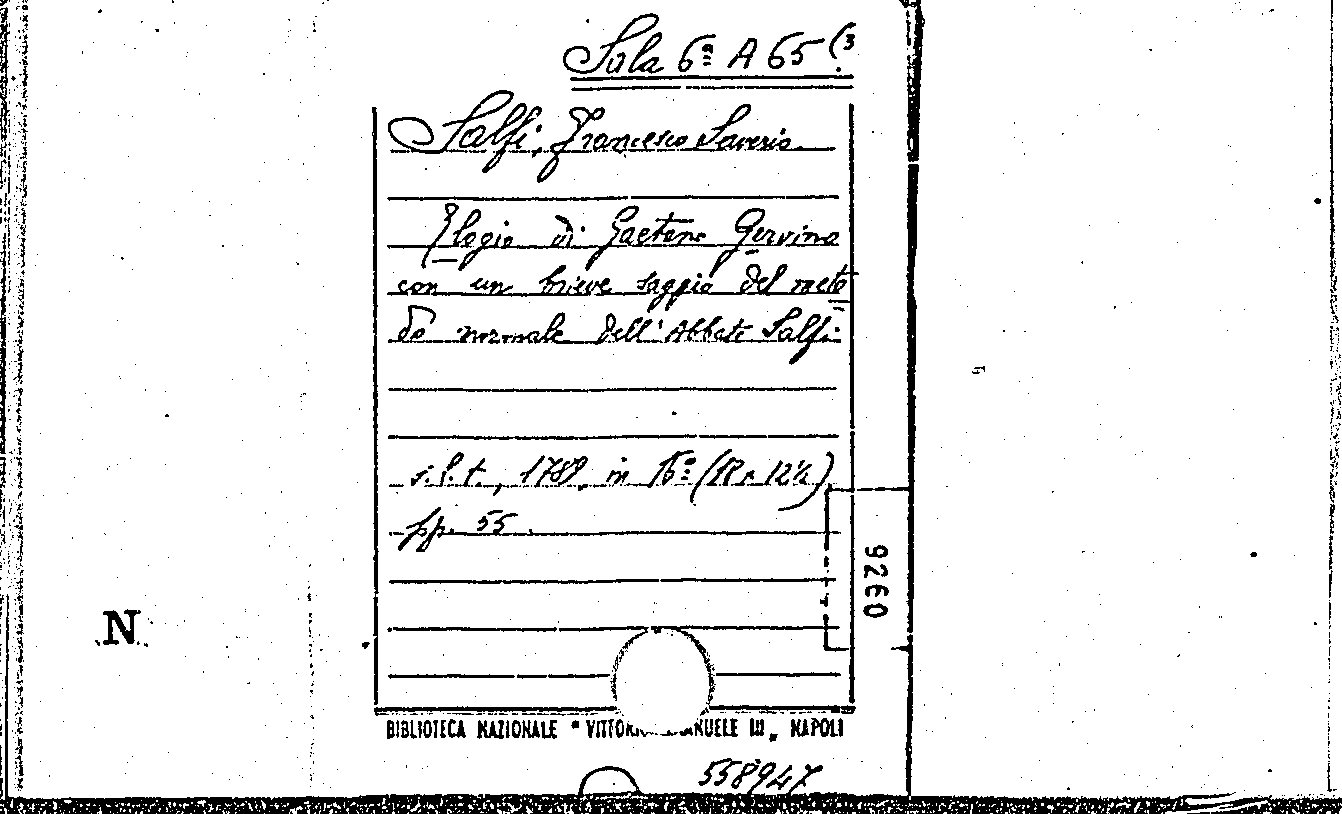 Sala 6ª A 65 (3
Salfi, Francesco Saverio
Elogio di Gaetano Gervino
con un brieve saggio del meto
do normale dell'Abbate Salfi.
s.l.t., 1789, in 16° (17 x 12½)
pp. 55.
0926
N
BIBLIOTECA NAZIONALE "VITTORIO EMANUELE III" NAPOLI
558947